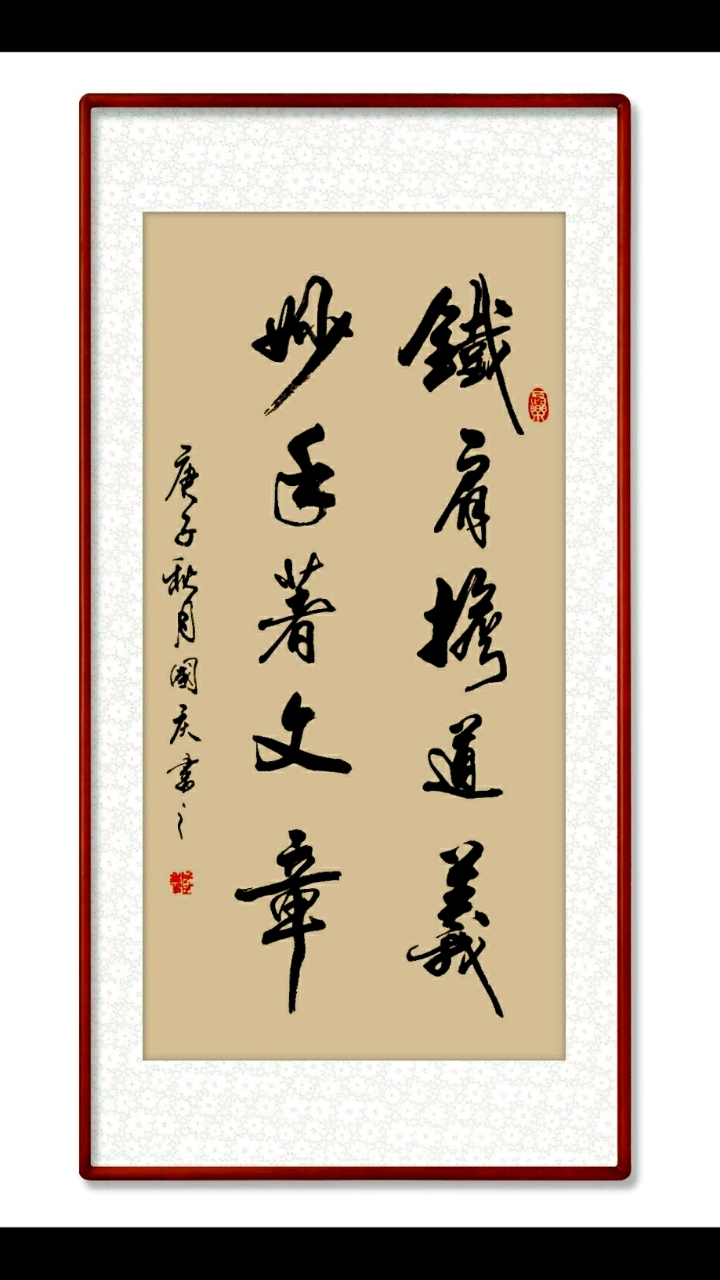 鐵肩擔道義
妙手著文章
庚子秋月國庆書之